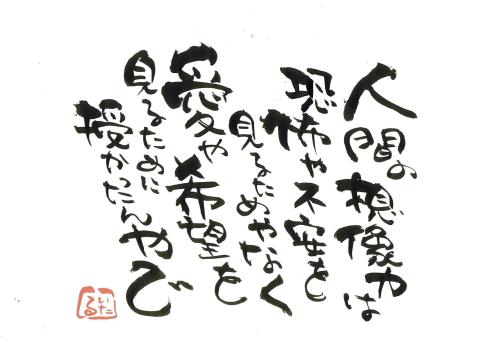 人間の想像力は
恐怖や不安を
見るためやなく
愛や希望を
見るために
授かったんやで
いたる